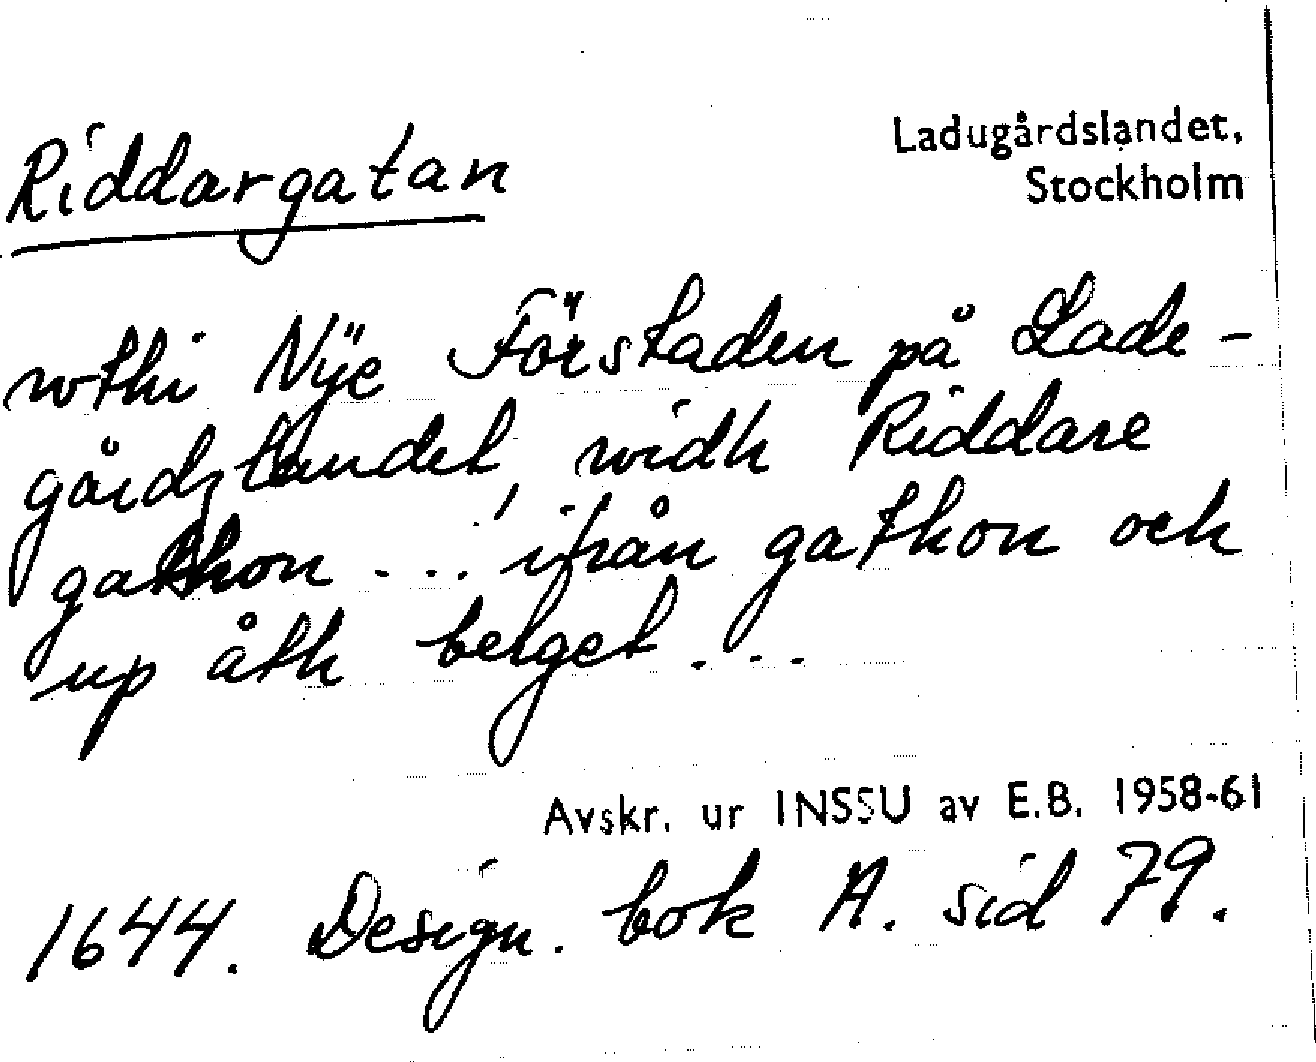 Riddargatan
Ladugårdslandet,
Stockholm
wthi Nÿe Förstaden på Lade-
gårdzlandet, widh Riddare
gathon ... ifrån gathon och
up åth berget ...
Avskr. ur INSSU av E.B. 1958-61
1644. Design. bok A. sid 79.